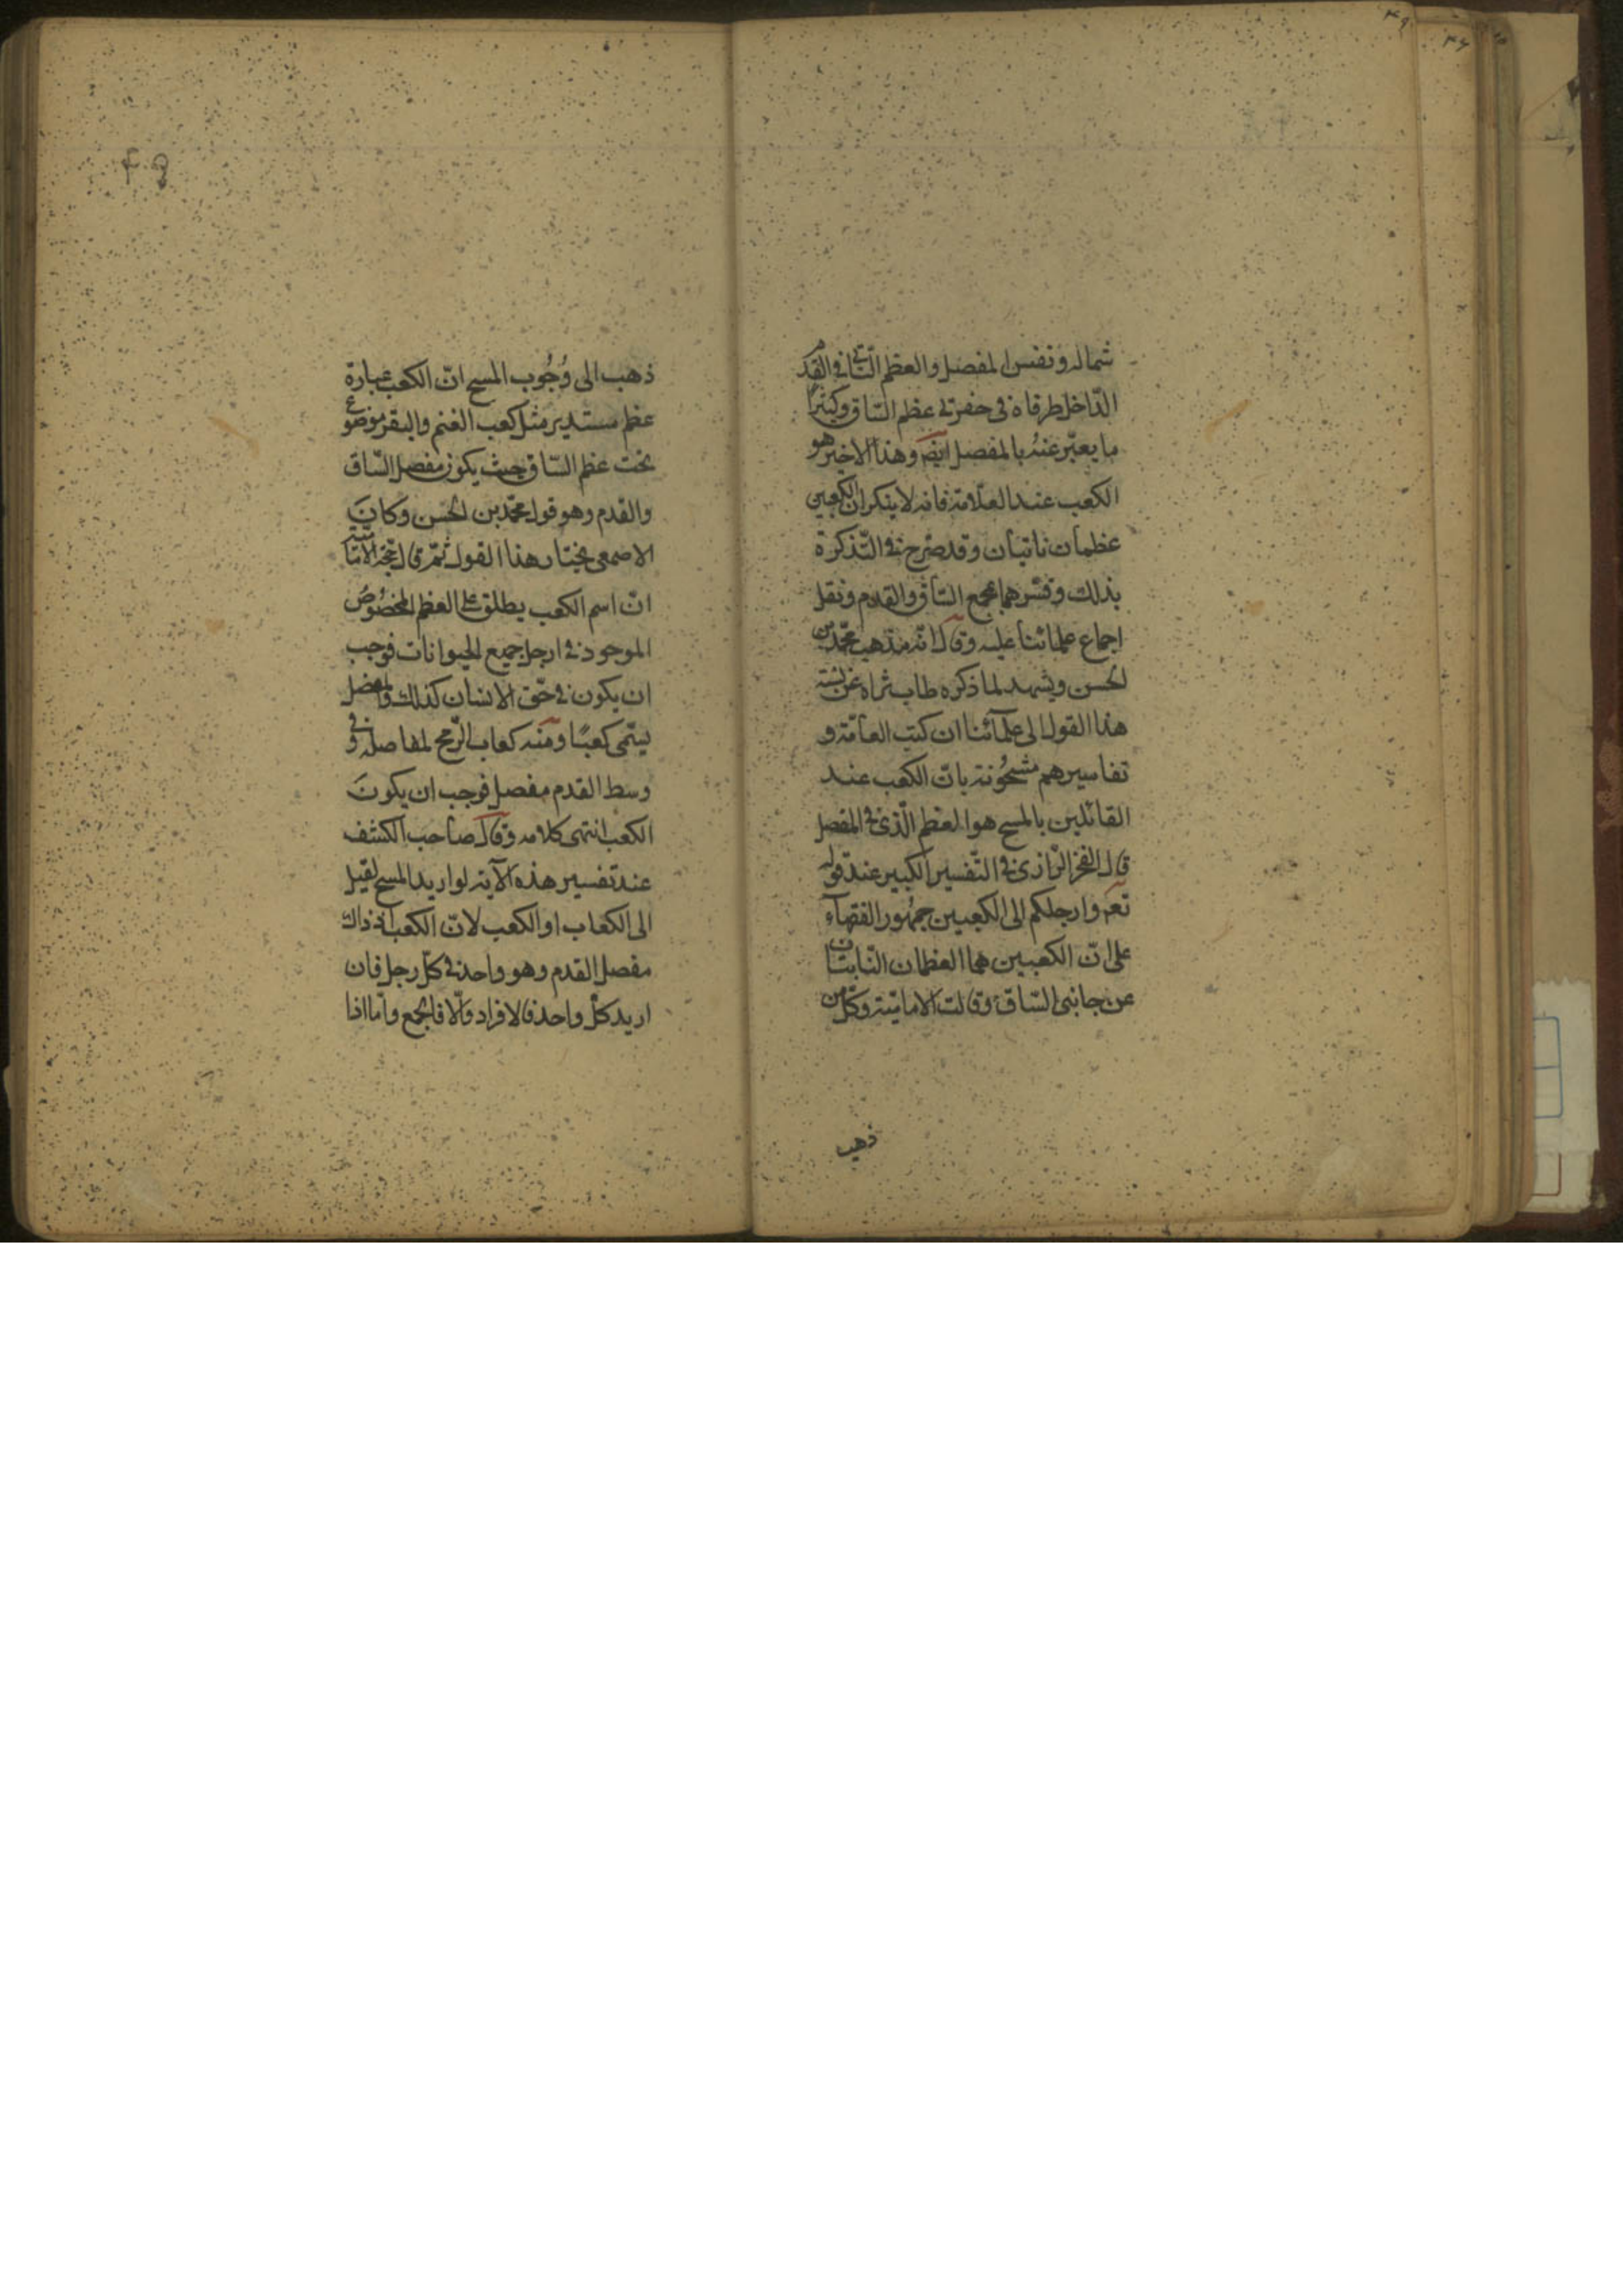 شماله ونفس المفصل والعظم الناتي في القدم
الداخل طرفاه في حفرتي عظم الساق وكثيرا
ما يعبّر عنه بالمفصل ايضه وهذا الاخير هو
الكعب عند العلّامة فانه لا ينكر ان الكعبين
عظمان ناتيان وقد صرح في التذكرة
بذلك وفسّرهما بمجمع الساق والقدم ونقل
اجماع علمائنا عليه وقال انه مذهب محمّد بن
الحسن ويشهد لما ذكره طاب ثراه عن نسبته
هذا القول الى علمآئنا ان كتب العامّة و
تفاسيرهم مشحُونة بانّ الكعب عند
القائلين بالمسح هو العظم الّذي في المفصل
قال الفخر الرازي في التّفسير الكبير عند قوله
تعم وارجلكم الى الكعبين جمهُور الفقهآء
على انّ الكعبين هما العظمان النّابتان
عن جانبي السّاق وقالت الاماميّة وكلّ من
ذهب
ذهب الى وُجُوب المسح انّ الكعب عبارة
عظم مستدير مثل كعب الغنم والبقر موضوع
تحت عظم السّاق حيث يكون مفصل السّاق
والقدم وهو قول محمّد بن الحسن وكانَ
الاصمعي يختار هذا القول ثمّ قال حجة الاماميّة
انّ اسم الكعب يطلق على العظم المخصُوصُ
الموجود في ارجل جميع الحيوانات فوجب
ان يكون في حقّ الانسان كذلك والمفصل
يسمّى كعبًا ومنه كعاب الرّمح لمفاصله وفي
وسط القدم مفصل فوجب ان يكونَ
الكعب انتهى كلامه وقال صاحب الكشف
عند تفسير هذه الآية لو اريد المسح لقيل
الى الكعاب او الكعب لانّ الكعب اذ ذاك
مفصل القدم وهو واحد في كلّ رجل فان
اريد كلّ واحد فالافراد والّا فالجمع وامّا اذا